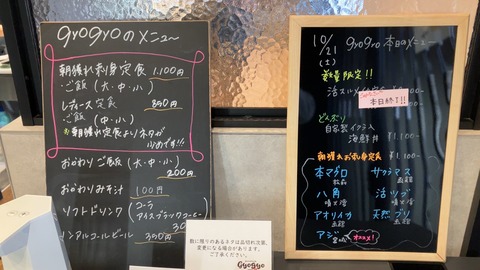 gyogyoのメニュー
朝獲れ刺身定食 1,100円
・ご飯(大・中・小)
レディース定食 890円
・ご飯(中・小)
朝獲れ定食よりネタが
小さめです!!
おかわりご飯(大・中・小)
200円
おかわりみそ汁 100円
ソフトドリンク
コーラ
アイスブラックコーヒー
ノンアルコールビール 300円
数に限りのあるネタは品切れ次第、
変更になる場合があります。
ご了承ください。
GyoGyo
10/21
(土)
gyogyo 本日のメニュー
数量限定!!
本日終了!!
どんぶり
自家製イクラ入
海鮮丼 ¥1,100-
朝獲れお刺身定食 ¥1,100-
本マグロ
サクラマス
八角
活ツブ
アオリイカ
天然ブリ
アジ
オススメ!